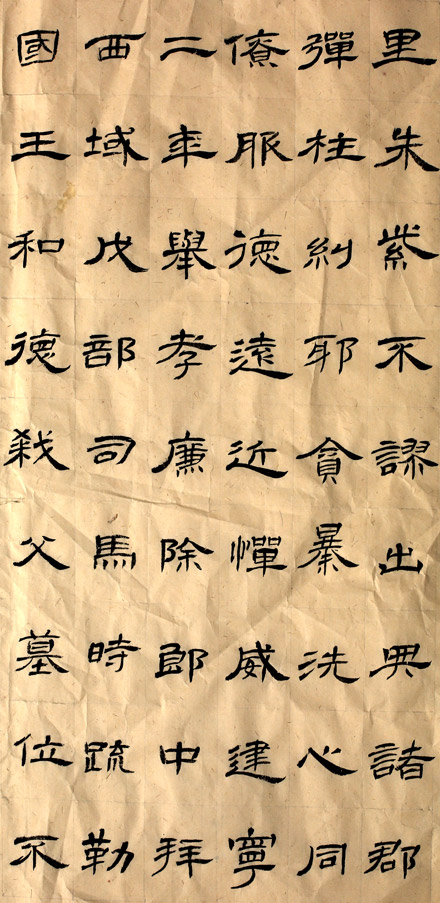 里朱紫不謬出典諸郡
彈枉糾耶貪暴洗心同
僚服德遠近憚威建寧
二年舉孝廉除郎中拜
西域戊部司馬時疏勒
國王和德弒父墓位不